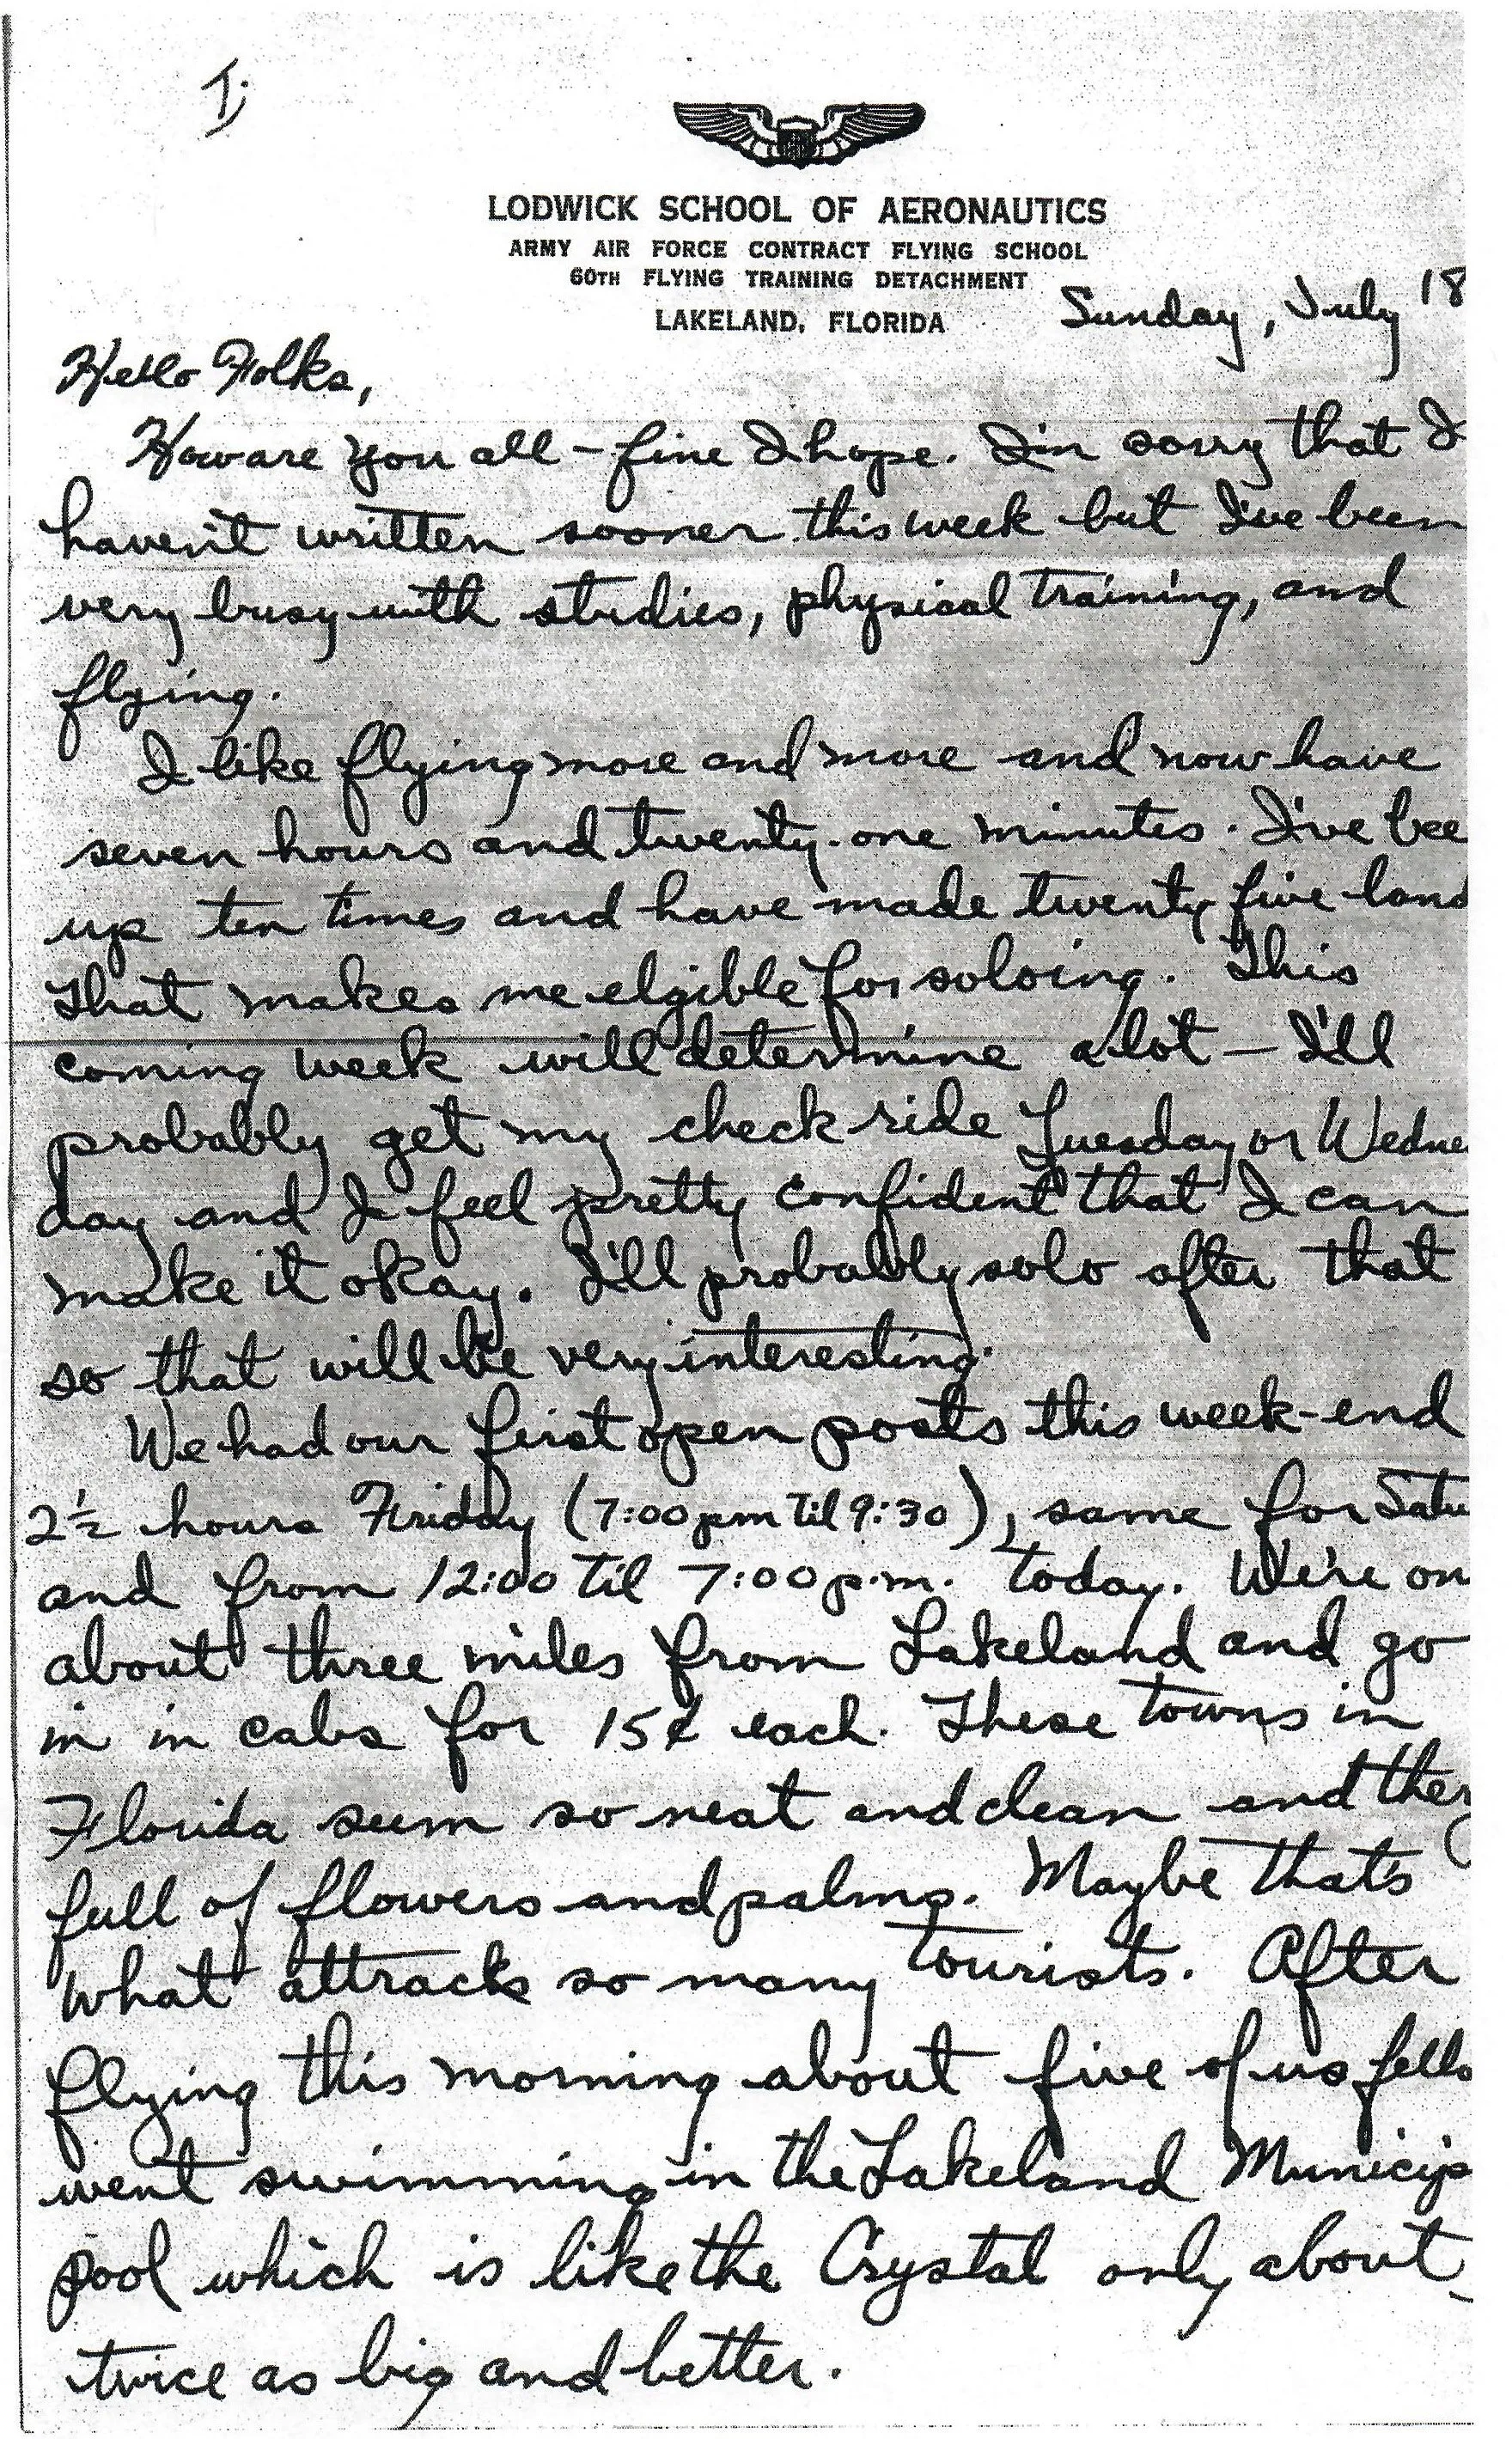 I;
LODWICK SCHOOL OF AERONAUTICS
ARMY AIR FORCE CONTRACT FLYING SCHOOL
60TH FLYING TRAINING DETACHMENT
LAKELAND, FLORIDA
Sunday, July 18
Hello Folks,
How are you all - fine I hope. I'm sorry that I
haven't written sooner this week but I've been
very busy with studies, physical training, and
flying.
I like flying more and more and now have
seven hours and twenty-one minutes. I've bee
up ten times and have made twenty five land
That makes me elgible for soloing. This
coming week will determine a lot - I'll
probably get my check ride Tuesday or Wednes
day and I feel pretty confident that I can
make it okay. I'll probably solo after that
so that will be very interesting.
We had our first open posts this week-end
2½ hours Friday (7:00 pm til 9:30), same for Satu
and from 12:00 til 7:00 p.m. today. We're on
about three miles from Lakeland and go
in in cabs for 15¢ each. These towns in
Florida seem so neat and clean and they
full of flowers and palms. Maybe that's
what attracks so many tourists. After
flying this morning about five of us fello
went swimming in the Lakeland Municip
pool which is like the Crystal only about
twice as big and better.